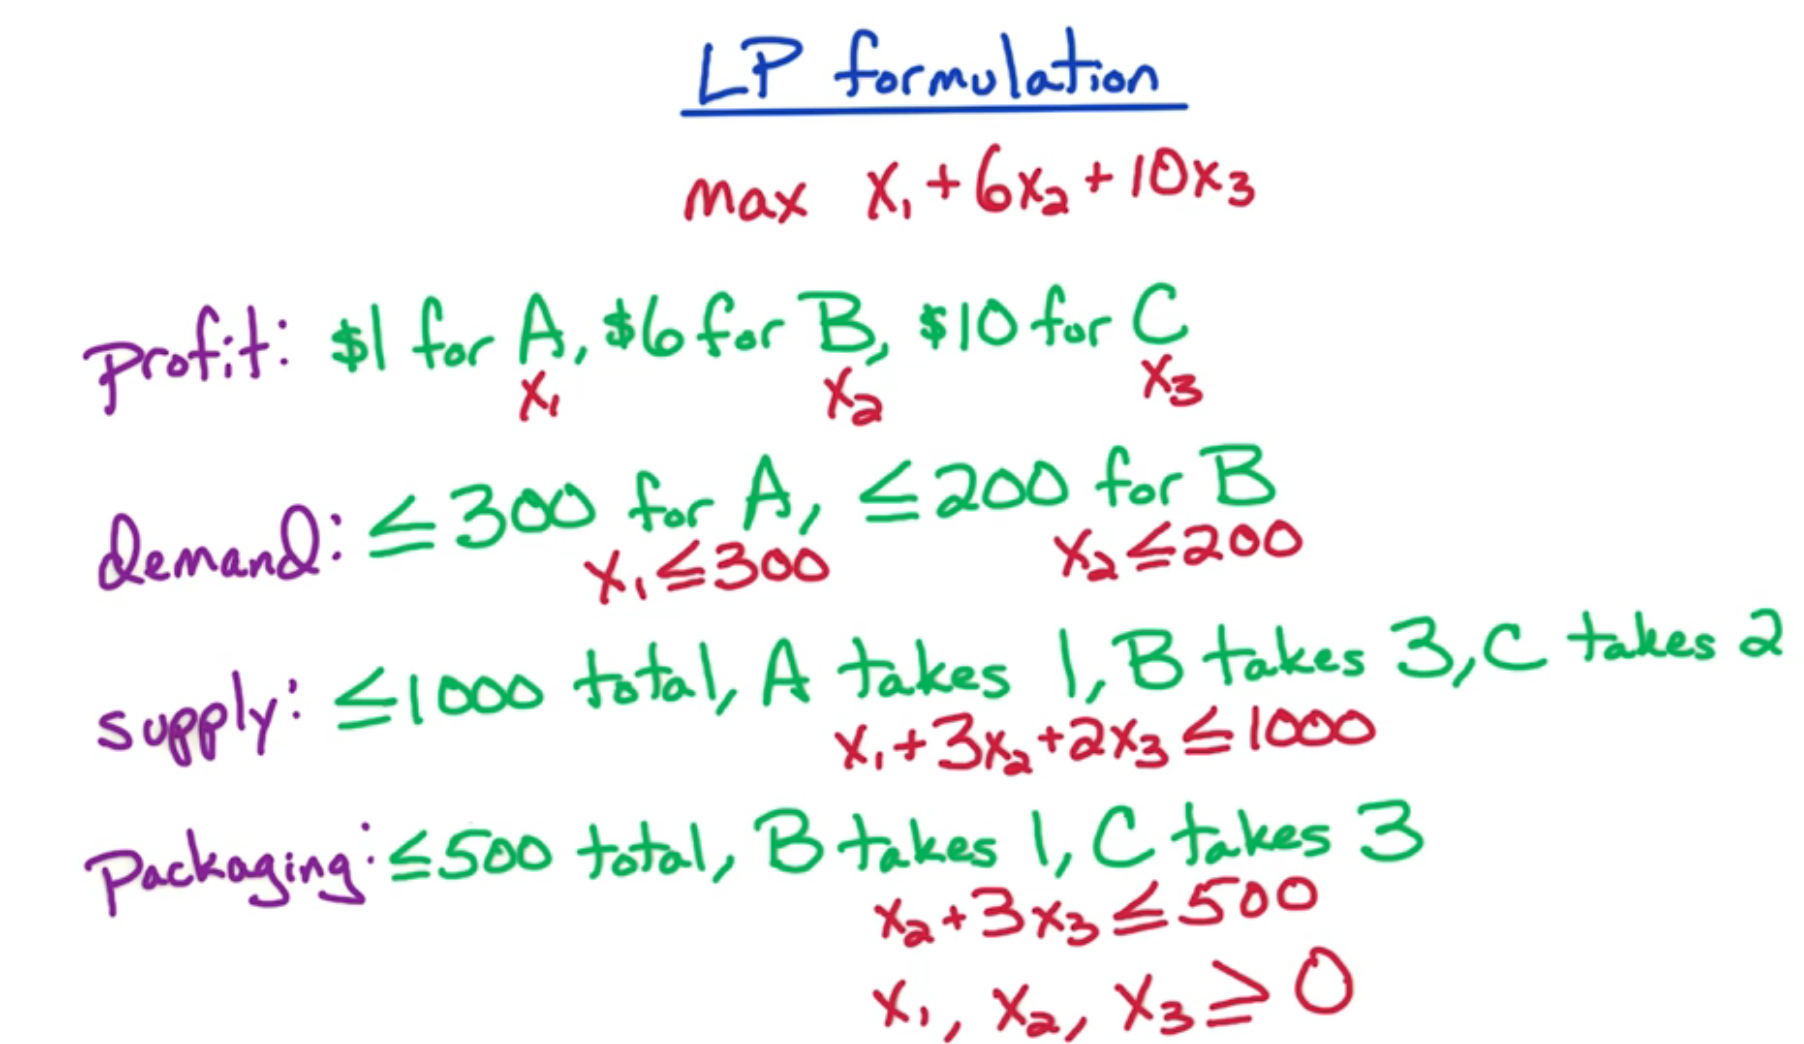 LP formulation
max x₁ + 6x₂ + 10x₃
Profit: $1 for A, $6 for B, $10 for C
x₁ x₂ x₃
demand: ≤ 300 for A, ≤ 200 for B
x₁ ≤ 300 x₂ ≤ 200
supply: ≤ 1000 total, A takes 1, B takes 3, C takes 2
x₁ + 3x₂ + 2x₃ ≤ 1000
Packaging: ≤ 500 total, B takes 1, C takes 3
x₂ + 3x₃ ≤ 500
x₁, x₂, x₃ ≥ 0